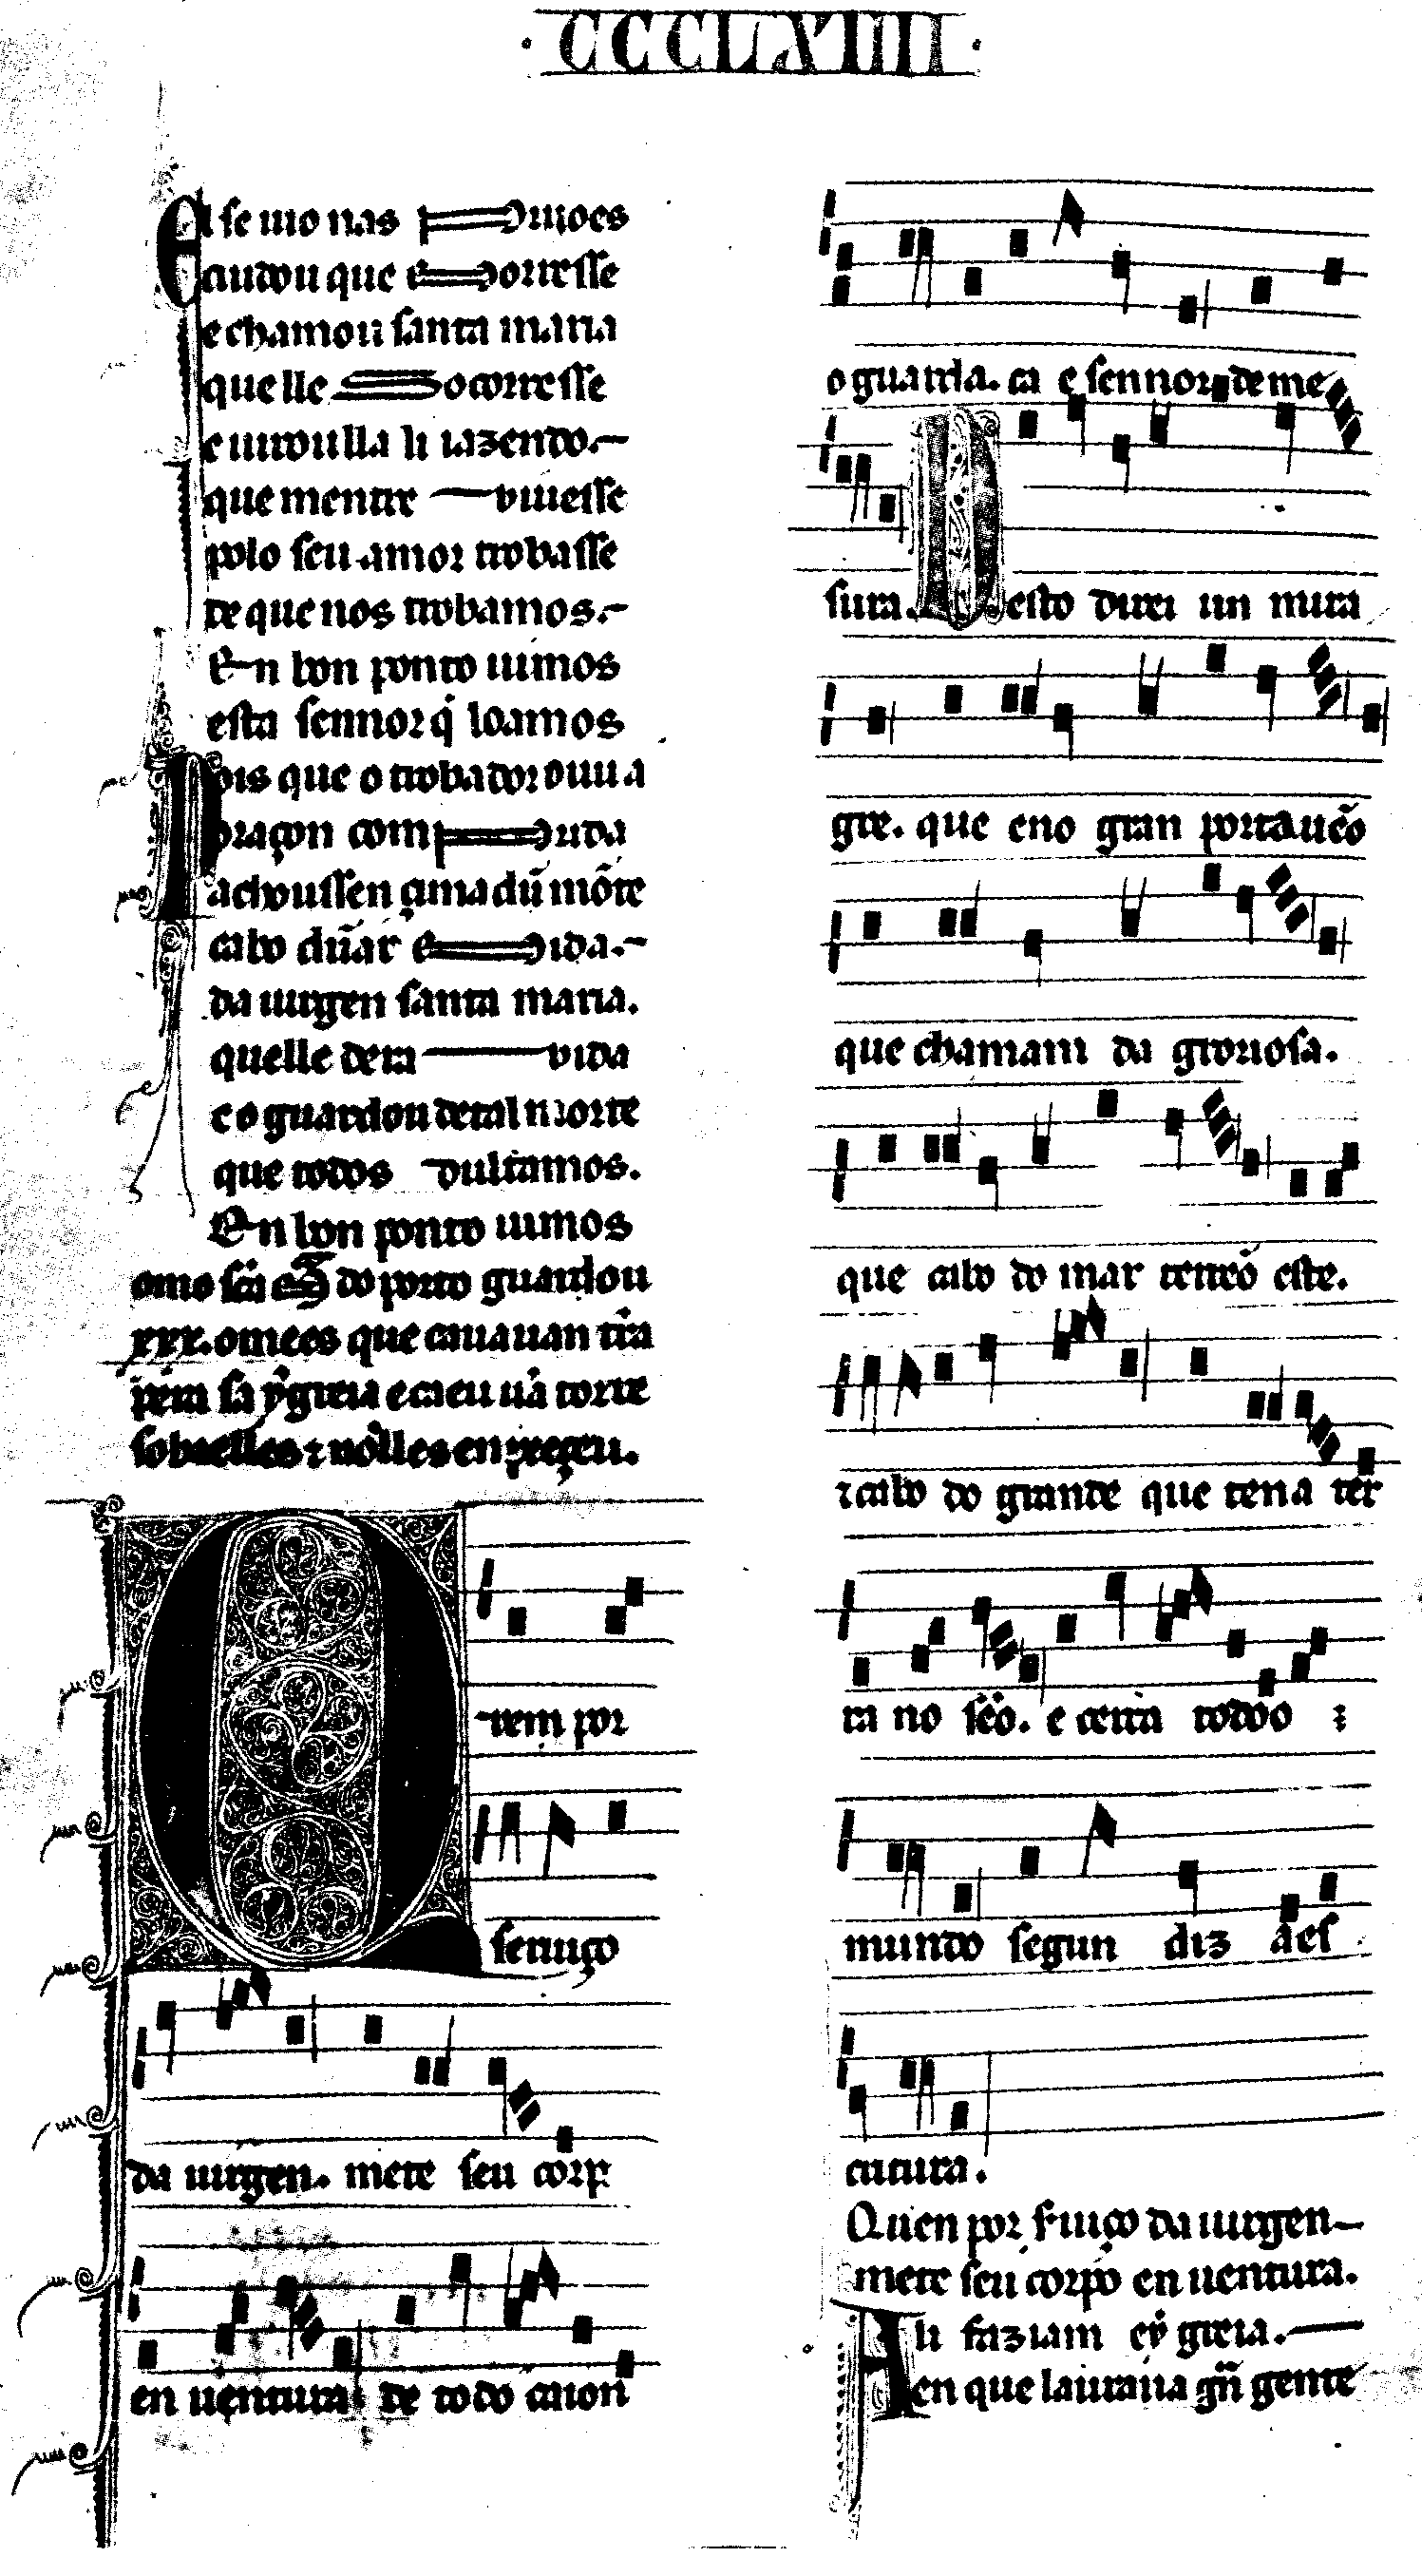 · CCCLXIIII ·
El se uio nas onioes
cuidou que e morresse
e chamou santa maria
quelle socorresse
e uirouilla li iazendo.
que mentre uiuesse
polo seu amor trobasse
de que nos trobamos.
En bon ponto uimos
esta sennor q̇ loamos
Pois que o trobador ouu a
oraçon comprida
achousse en çima dũ mõte
cabo dũar e ida.
da uirgen santa maria.
quelle dera uida
e o guardou de tal morte
que todos dultamos.
En bon ponto uimos
omo do porto guardou
xxx. omees que cauauan tr̃a
pera sa ygreia e caeu ũa torre
sobrelles ⁊ nõ lles enpeeçeu.
Quen por
seruiço
da uirgen. mete seu corp
en uentura de todo cajon
o guarda. ca e sennor de me
sura. Desto direi un mira
gre. que eno gran porto aueo
que chamam da groriosa.
que cabo do mar terreo este.
⁊ cabo do grande que ten a ter
ra no seo. e cerca todoo
mundo segun diz a es
critura.
Quen por seruiço da uirgen
mete seu corpo en uentura.
Ali fazian ey greia.
en que lauraua grã gente